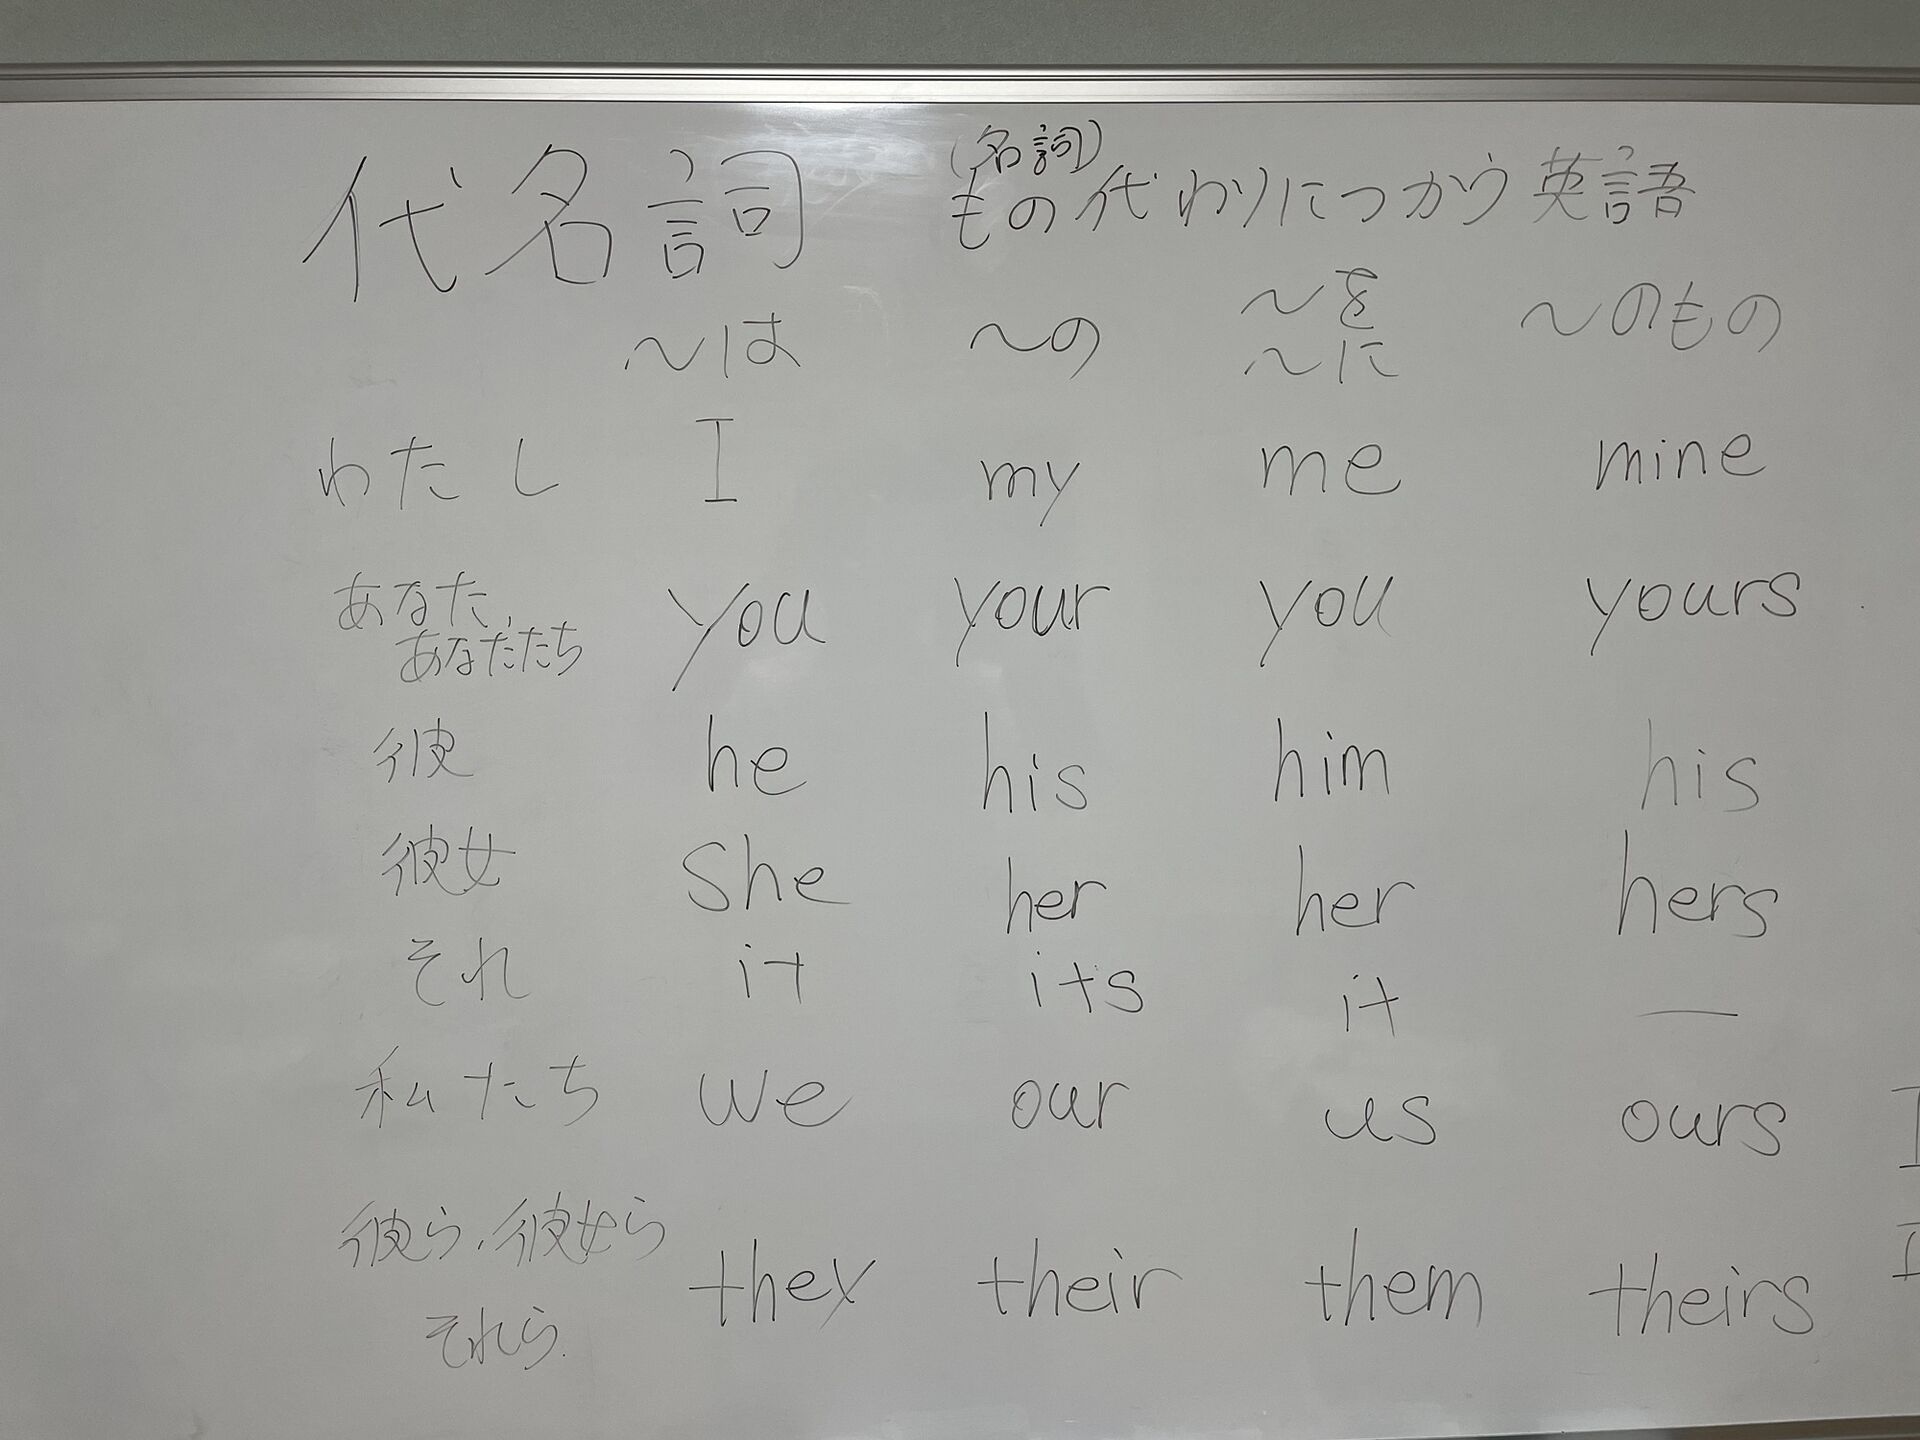 代名詞 (名詞)
もの代わりにつかう英語
〜は 〜の 〜を 〜のもの
〜に
わたし I my me mine
あなた、 you your you yours
あなたたち
彼 he his him his
彼女 she her her hers
それ it its it —
私たち we our us ours
彼ら、彼女ら they their them theirs
それら